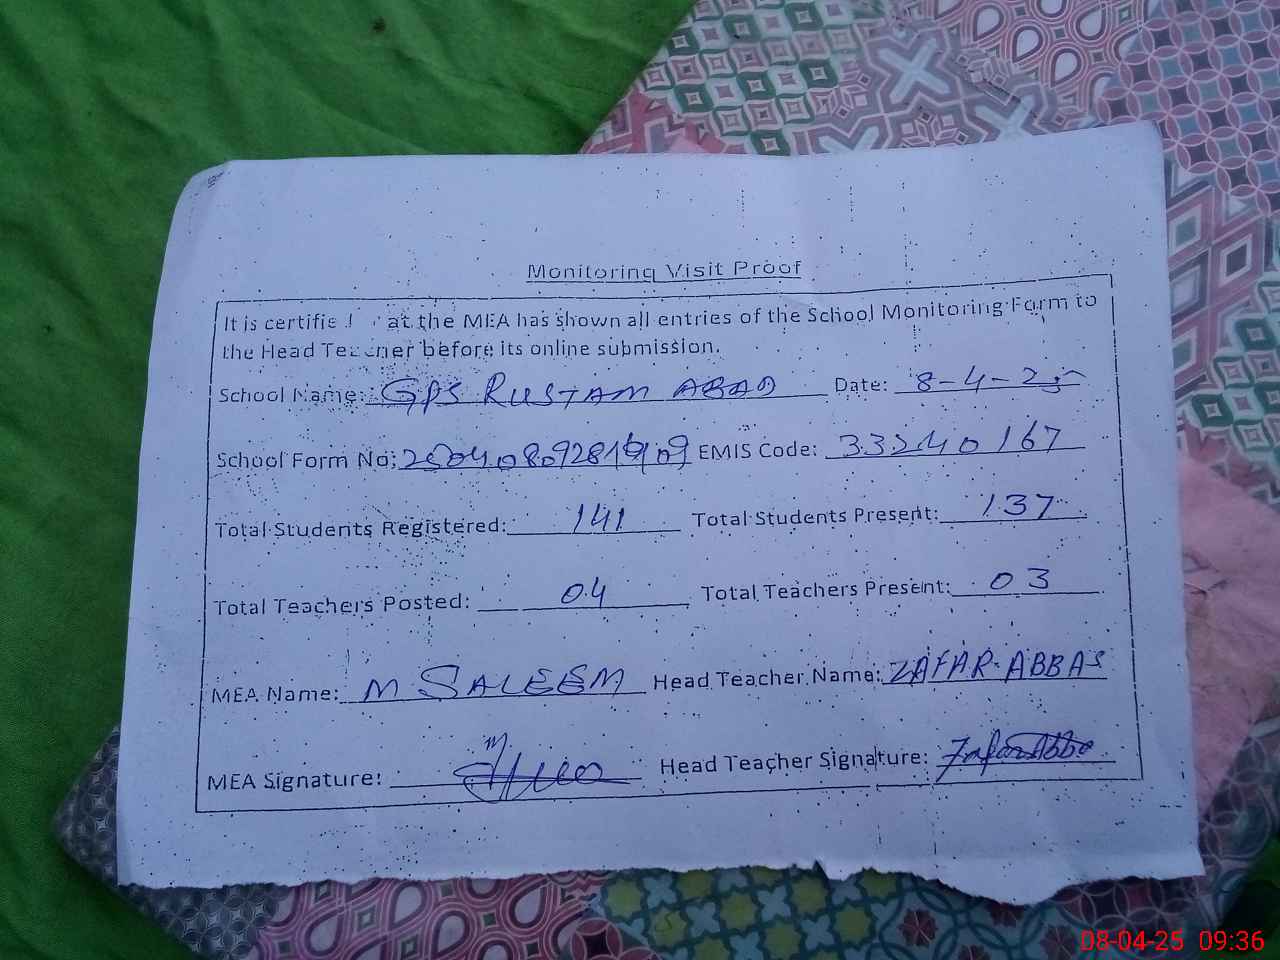 Monitoring Visit Proof
It is certified that the MEA has shown all entries of the School Monitoring Form to
the Head Teacher before its online submission.
School Name: GPS RUSTAM ABAD Date: 8-4-25
School Form No: EMIS Code: 33240167
Total Students Registered: 141 Total Students Present: 137
Total Teachers Posted: 04 Total Teachers Present: 03
MEA Name: M SALEEM Head Teacher Name: ZAFAR ABBAS
MEA Signature: Head Teacher Signature: Zafar Abbas
08-04-25 09:36